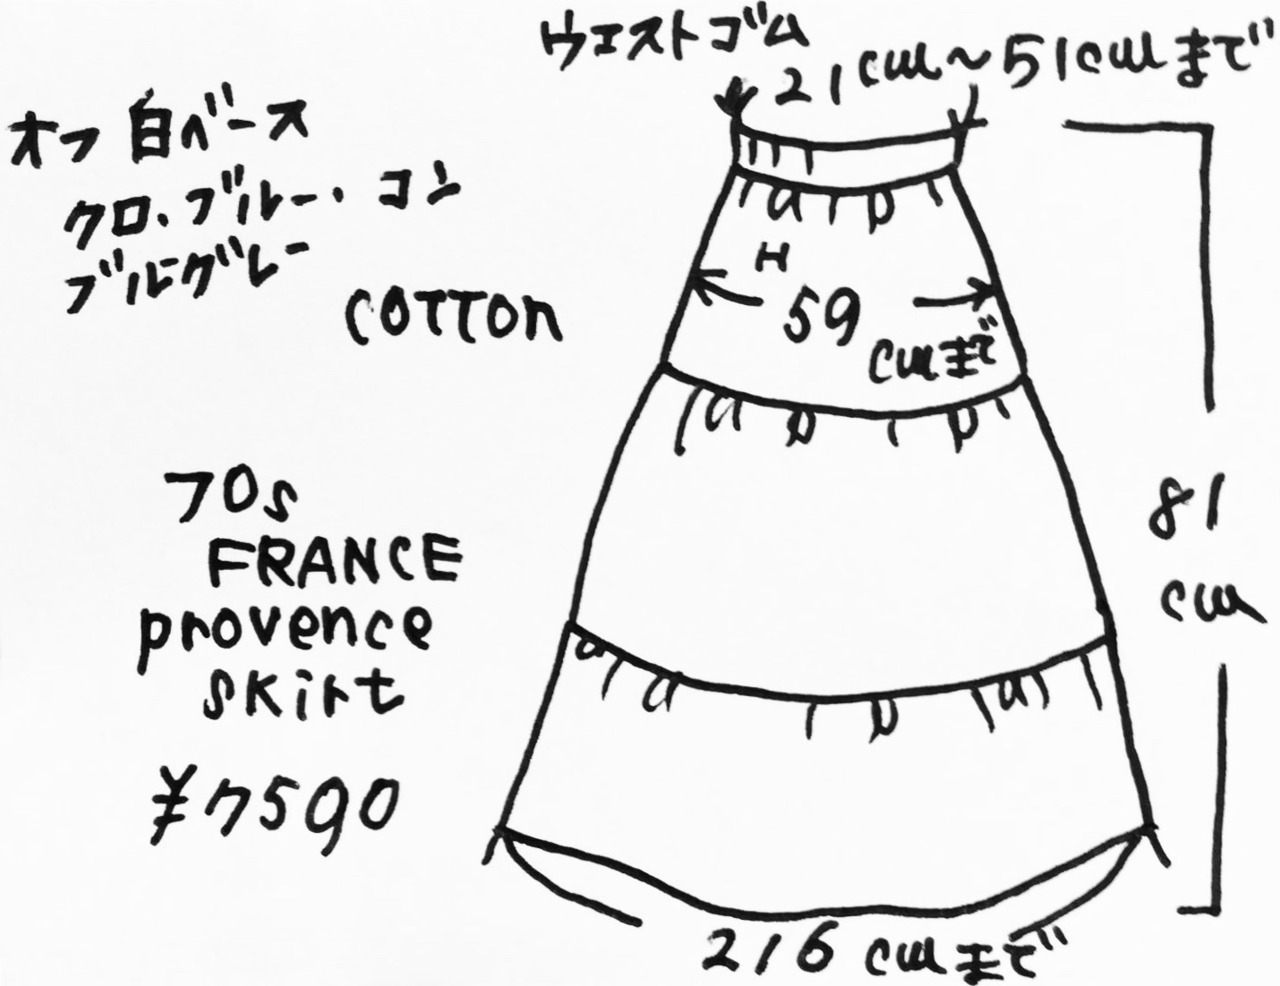 ウエストゴム
21cm〜51cmまで
オフ白ベース
クロ、ブルー・コン
ブルーグレー
COTTON
H
59
cmまで
70s
FRANCE
provence
skirt
¥7590
81
cm
216cmまで